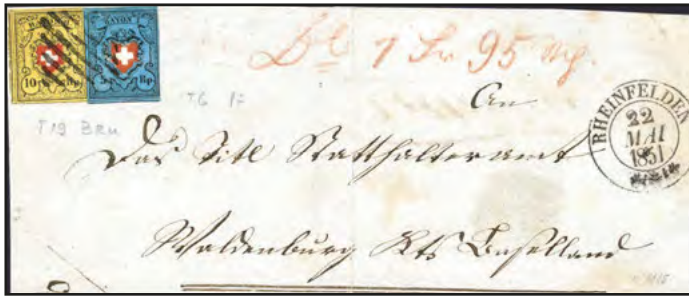 RAYON
10 Rp.
RAYON
5 Rp
1 Fr 95 Rp.
T6
T19 BRU
An
RHEINFELDEN
22
MAI
1851
Das Titl Statthalteramt
Waldenburg Kts Baselland